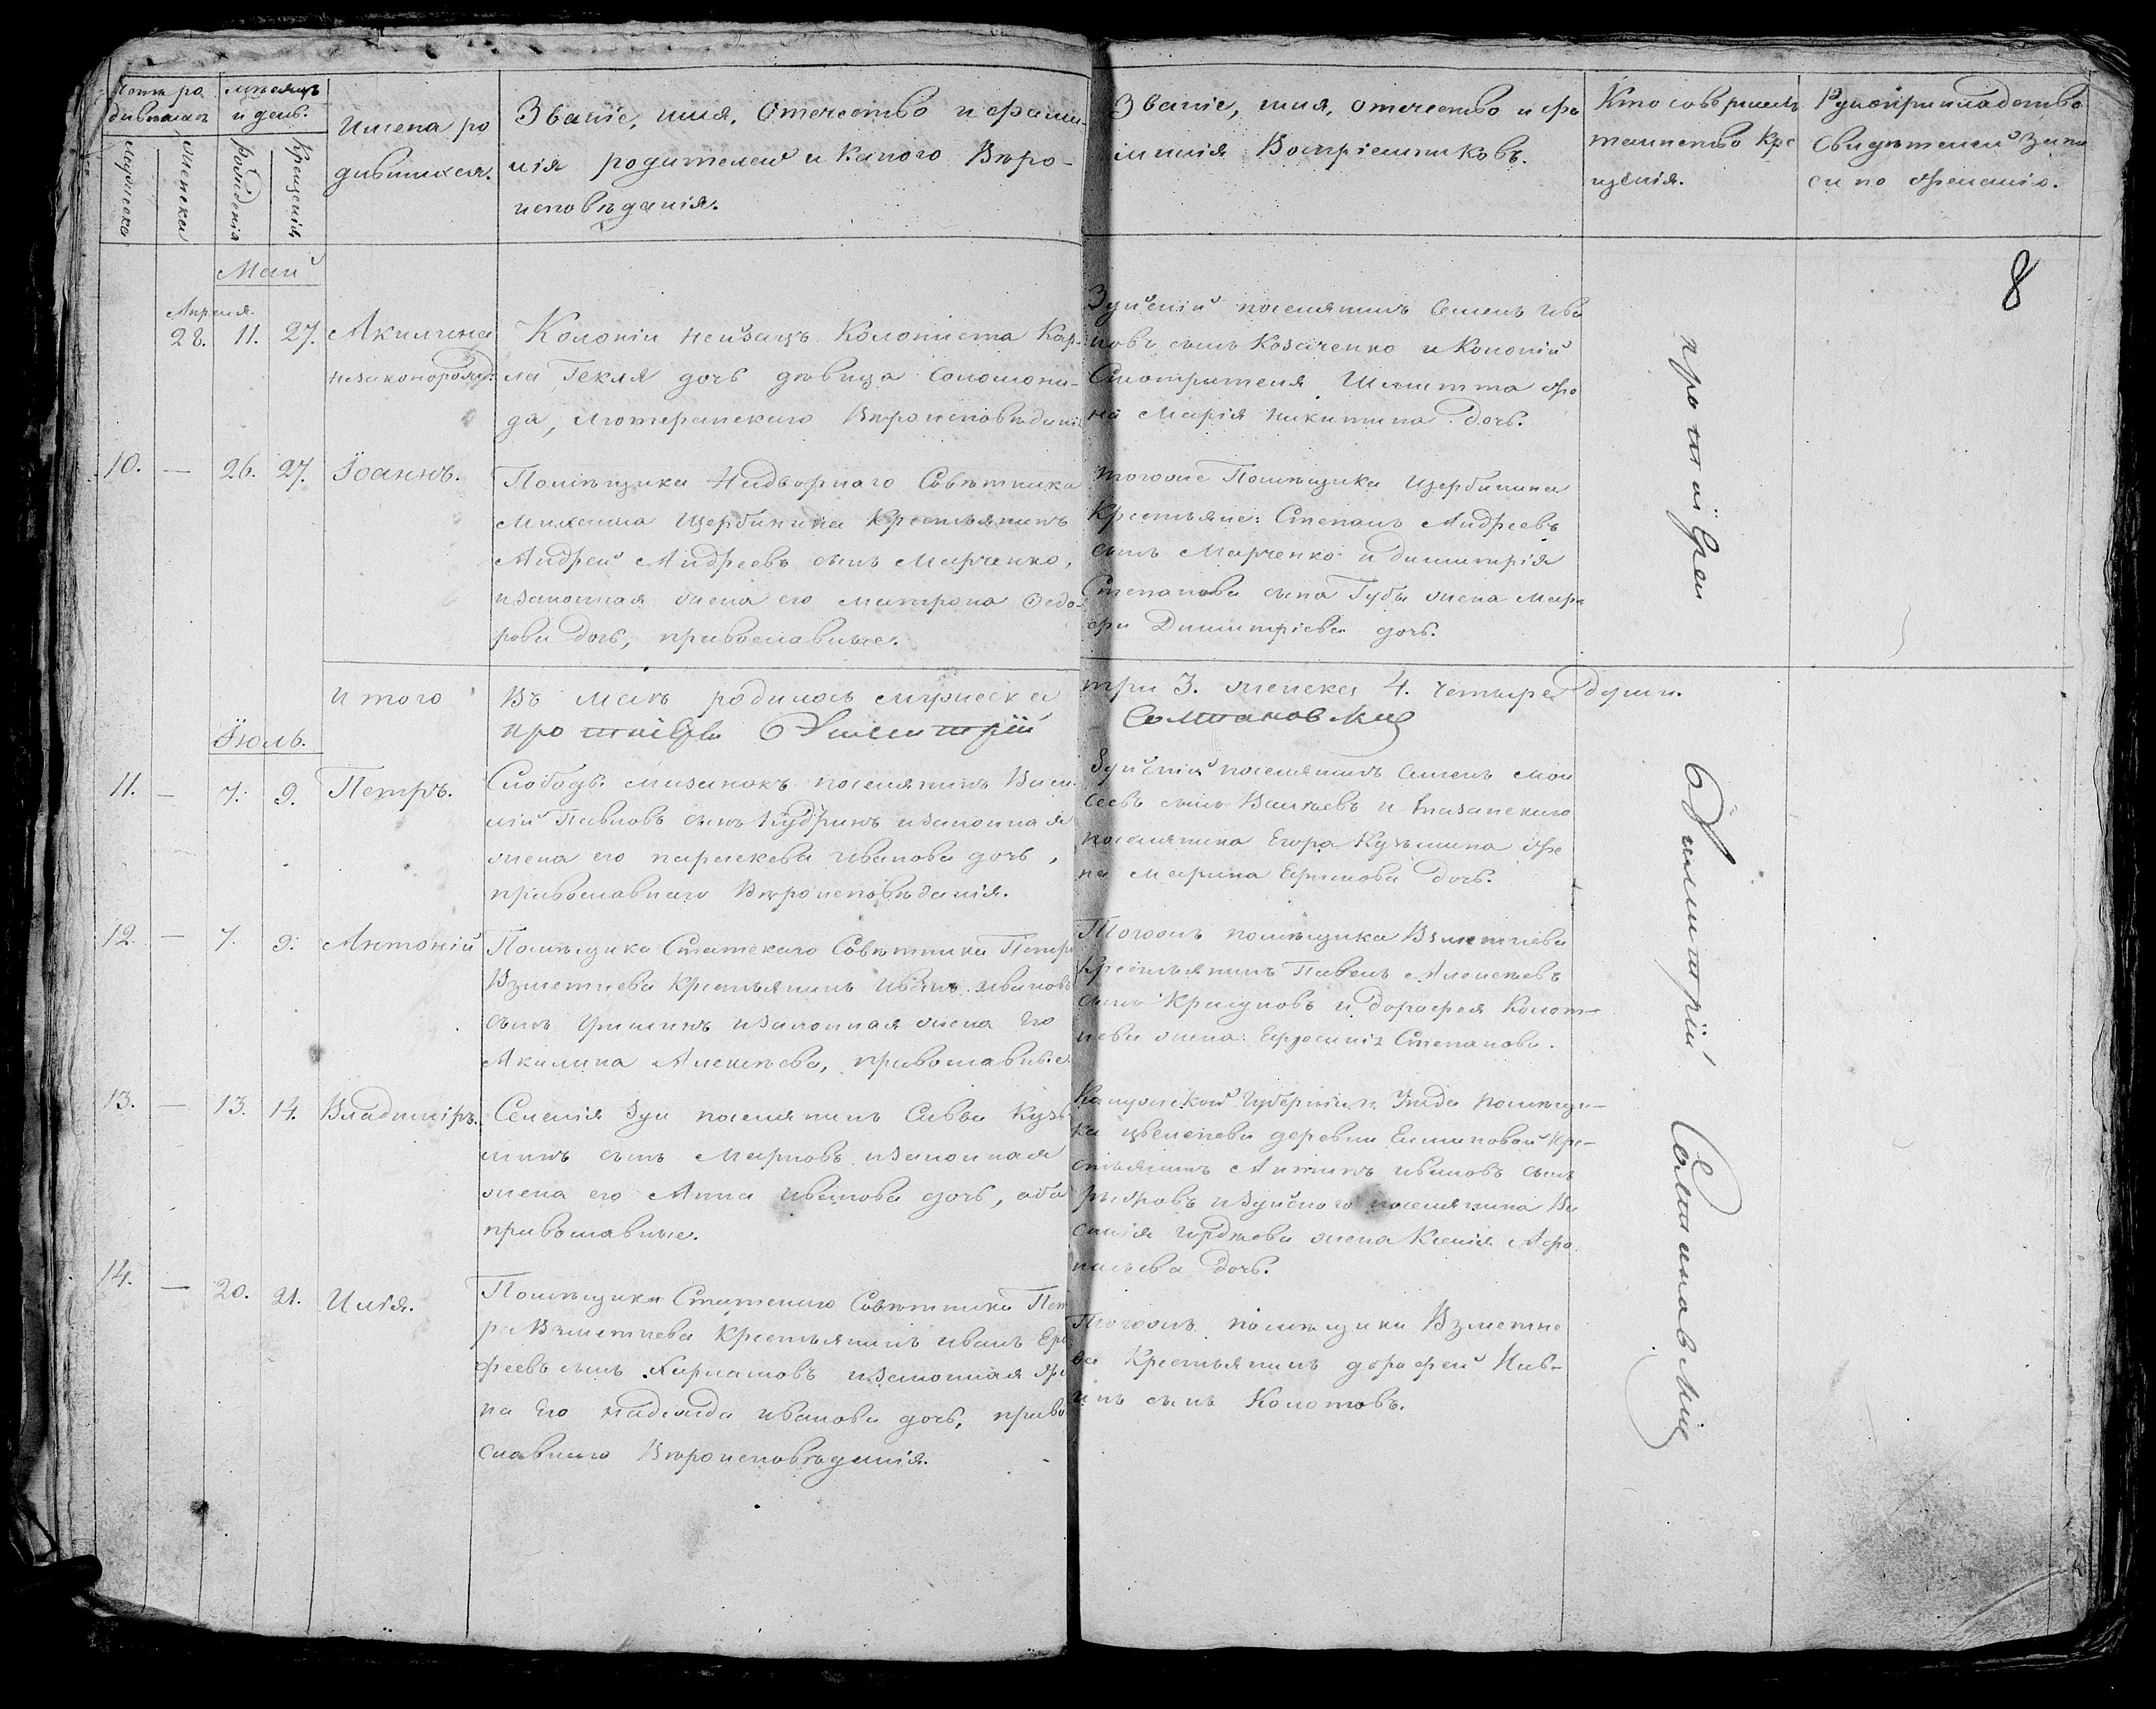 Счетъ ро
дившихся
мѣсяцъ
и день.
мужеска
женска
рожденія
Крещенія
Имена ро
дившихся.
Званіе, имя, Отечество и фами-
лія родителей и Какого Вѣро-
исповѣданія.
Званіе, имя, отечество и фа
милія Воспріемниковъ.
Кто совершалъ
таинство Кре
щенія.
Рукоприкладство
Свидѣтелей запи
си по желанію.
8
Май
Апреля.
28. 11. 27. Акилина
незаконорожд:
Колоніи Нейзацъ Колониста Кар-
ла Гекля дочь дѣвица Соломони-
да, Лютеранскаго Вѣроисповѣданія
Зуйскій поселянинъ Семенъ Ива
новъ сынъ Козаченко и Колоній
Смотрителя Шмитта же
на Марія Никитина дочь.
10. — 26. 27. Іоаннъ.
Помѣщика Надворнаго Совѣтника
Михаила Щербинина Крестьянинъ
Андрей Андреевъ сынъ Марченко,
и законная жена его Матрона Федо-
рова дочь, православные.
тогоже Помѣщика Щербинина
Крестьяне: Степанъ Андреевъ
сынъ Марченко и Димитрія
Степанова сына Губы жена Мар-
фа Димитріева дочь.
итого
Въ маѣ родилось мужеска
три 3. женска 4. четыре души.
протоіерей Димитрій
Іюль.
11. — 7. 9. Петръ.
Слободы Мазанокъ поселянинъ Васи-
лій Павловъ сынъ Кудринъ и законная
жена его Параскева Иванова дочь,
православнаго Вѣроисповѣданія.
Зуйскій поселянинъ Семенъ Мои
сеевъ сынъ и Мазанскаго
поселянина Егора Кузьмина же
на Марина дочь.
12. — 7. 9. Антоній
Помѣщика Статскаго Совѣтника Петра
Взметнева Крестьянинъ Иванъ Ивановъ
сынъ и законная жена Его
Акилина Алексѣева, православные.
Тогожъ помѣщика Взметнева
Крестьянинъ Павелъ Алексѣевъ
сынъ и Дорофея Колот-
нева жена Ефросинія Степанова.
13. — 13. 14. Владиміръ.
Селенія Зуи поселянинъ Савва Кузь-
минъ сынъ Марковъ и законная
жена его Анна Иванова дочь, оба
православные.
Калужской Губерніи Уѣзда помѣщи-
ка деревни Кре-
стьянинъ Ивановъ сынъ
и Зуйскаго поселянина Ва
силія жена Ксенія Афа
насьева дочь.
14. — 20. 21. Илія.
Помѣщика Статскаго Совѣтника Пет
ра Взметнева Крестьянинъ Иванъ Еро
феевъ сынъ и законная же
на Его Надежда Иванова дочь, право
славнаго Вѣроисповѣданія.
Тогожъ помѣщика Взметне
ва Крестьянинъ Дорофей
сынъ Колотовъ.
протоіерей
Димитрій